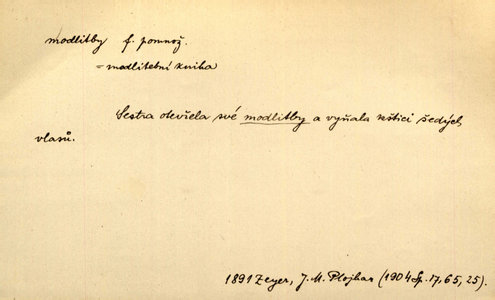 modlitby f. pomnož.
= modlitební kniha
Sestra otevřela své modlitby a vyňala kštici šedých
vlasů.
1891 Zeyer, J. M. Plojhar (1904 Sp. 17, 65, 25).